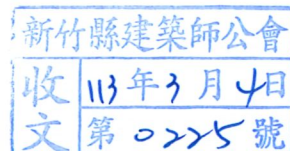 新竹縣建築師公會
收文
113年3月4日
第0225號